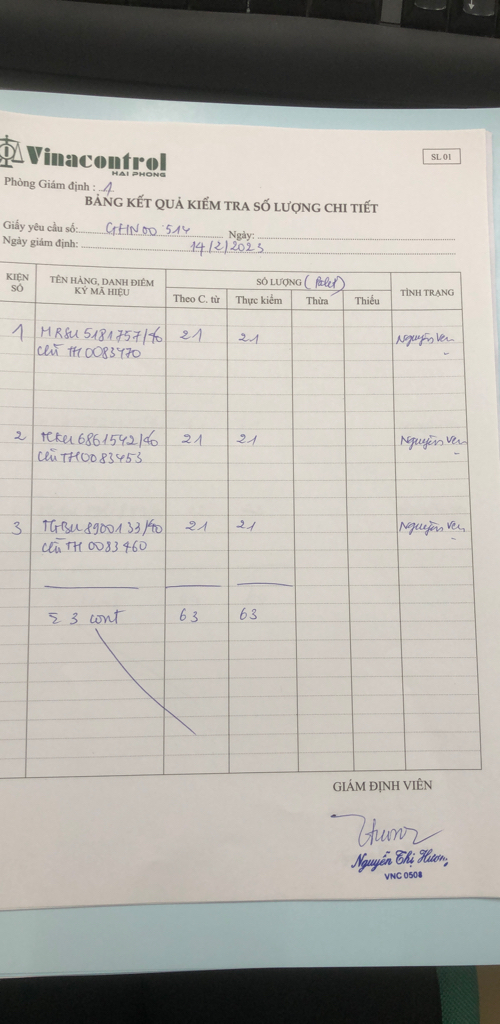 Vinacontrol
HAI PHONG
SL 01
Phòng Giám định : 1
BẢNG KẾT QUẢ KIỂM TRA SỐ LƯỢNG CHI TIẾT
Giấy yêu cầu số: GHN00 514 Ngày:
Ngày giám định: 14/2/2023
KIỆN SỐ TÊN HÀNG, DANH ĐIỂM KÝ MÃ HIỆU SỐ LƯỢNG (Palet) TÌNH TRẠNG
Theo C. từ Thực kiểm Thừa Thiếu
1 MRSU 5181757/40 21 21 Nguyên vẹn
chì TH 0083470
2 6861542/40 21 21 Nguyên vẹn
chì TH 0083453
3 TGBU 8900133/40 21 21 Nguyên vẹn
chì TH 0083460
Σ 3 cont 63 63
GIÁM ĐỊNH VIÊN
Nguyễn Thị Hương
VNC 0508